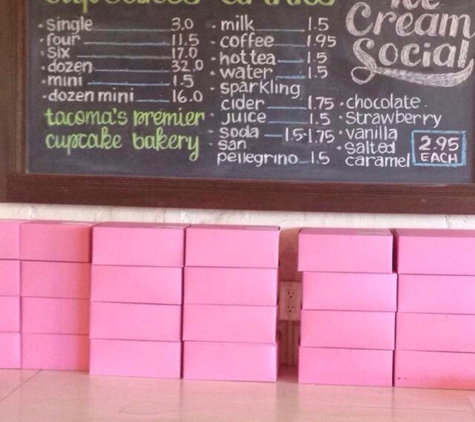 cupcakes
· single 3.0
· four 11.5
· six 17.0
· dozen 32.0
· mini 1.5
· dozen mini 16.0
tacoma's premier
cupcake bakery
drinks
· milk 1.5
· coffee 1.95
· hot tea 1.5
· water 1.5
· sparkling
cider 1.75
· juice 1.5
· soda 1.5-1.75
· san
pellegrino 1.5
Ice
Cream
Social
· chocolate
· Strawberry
· vanilla
· salted
caramel
2.95
EACH